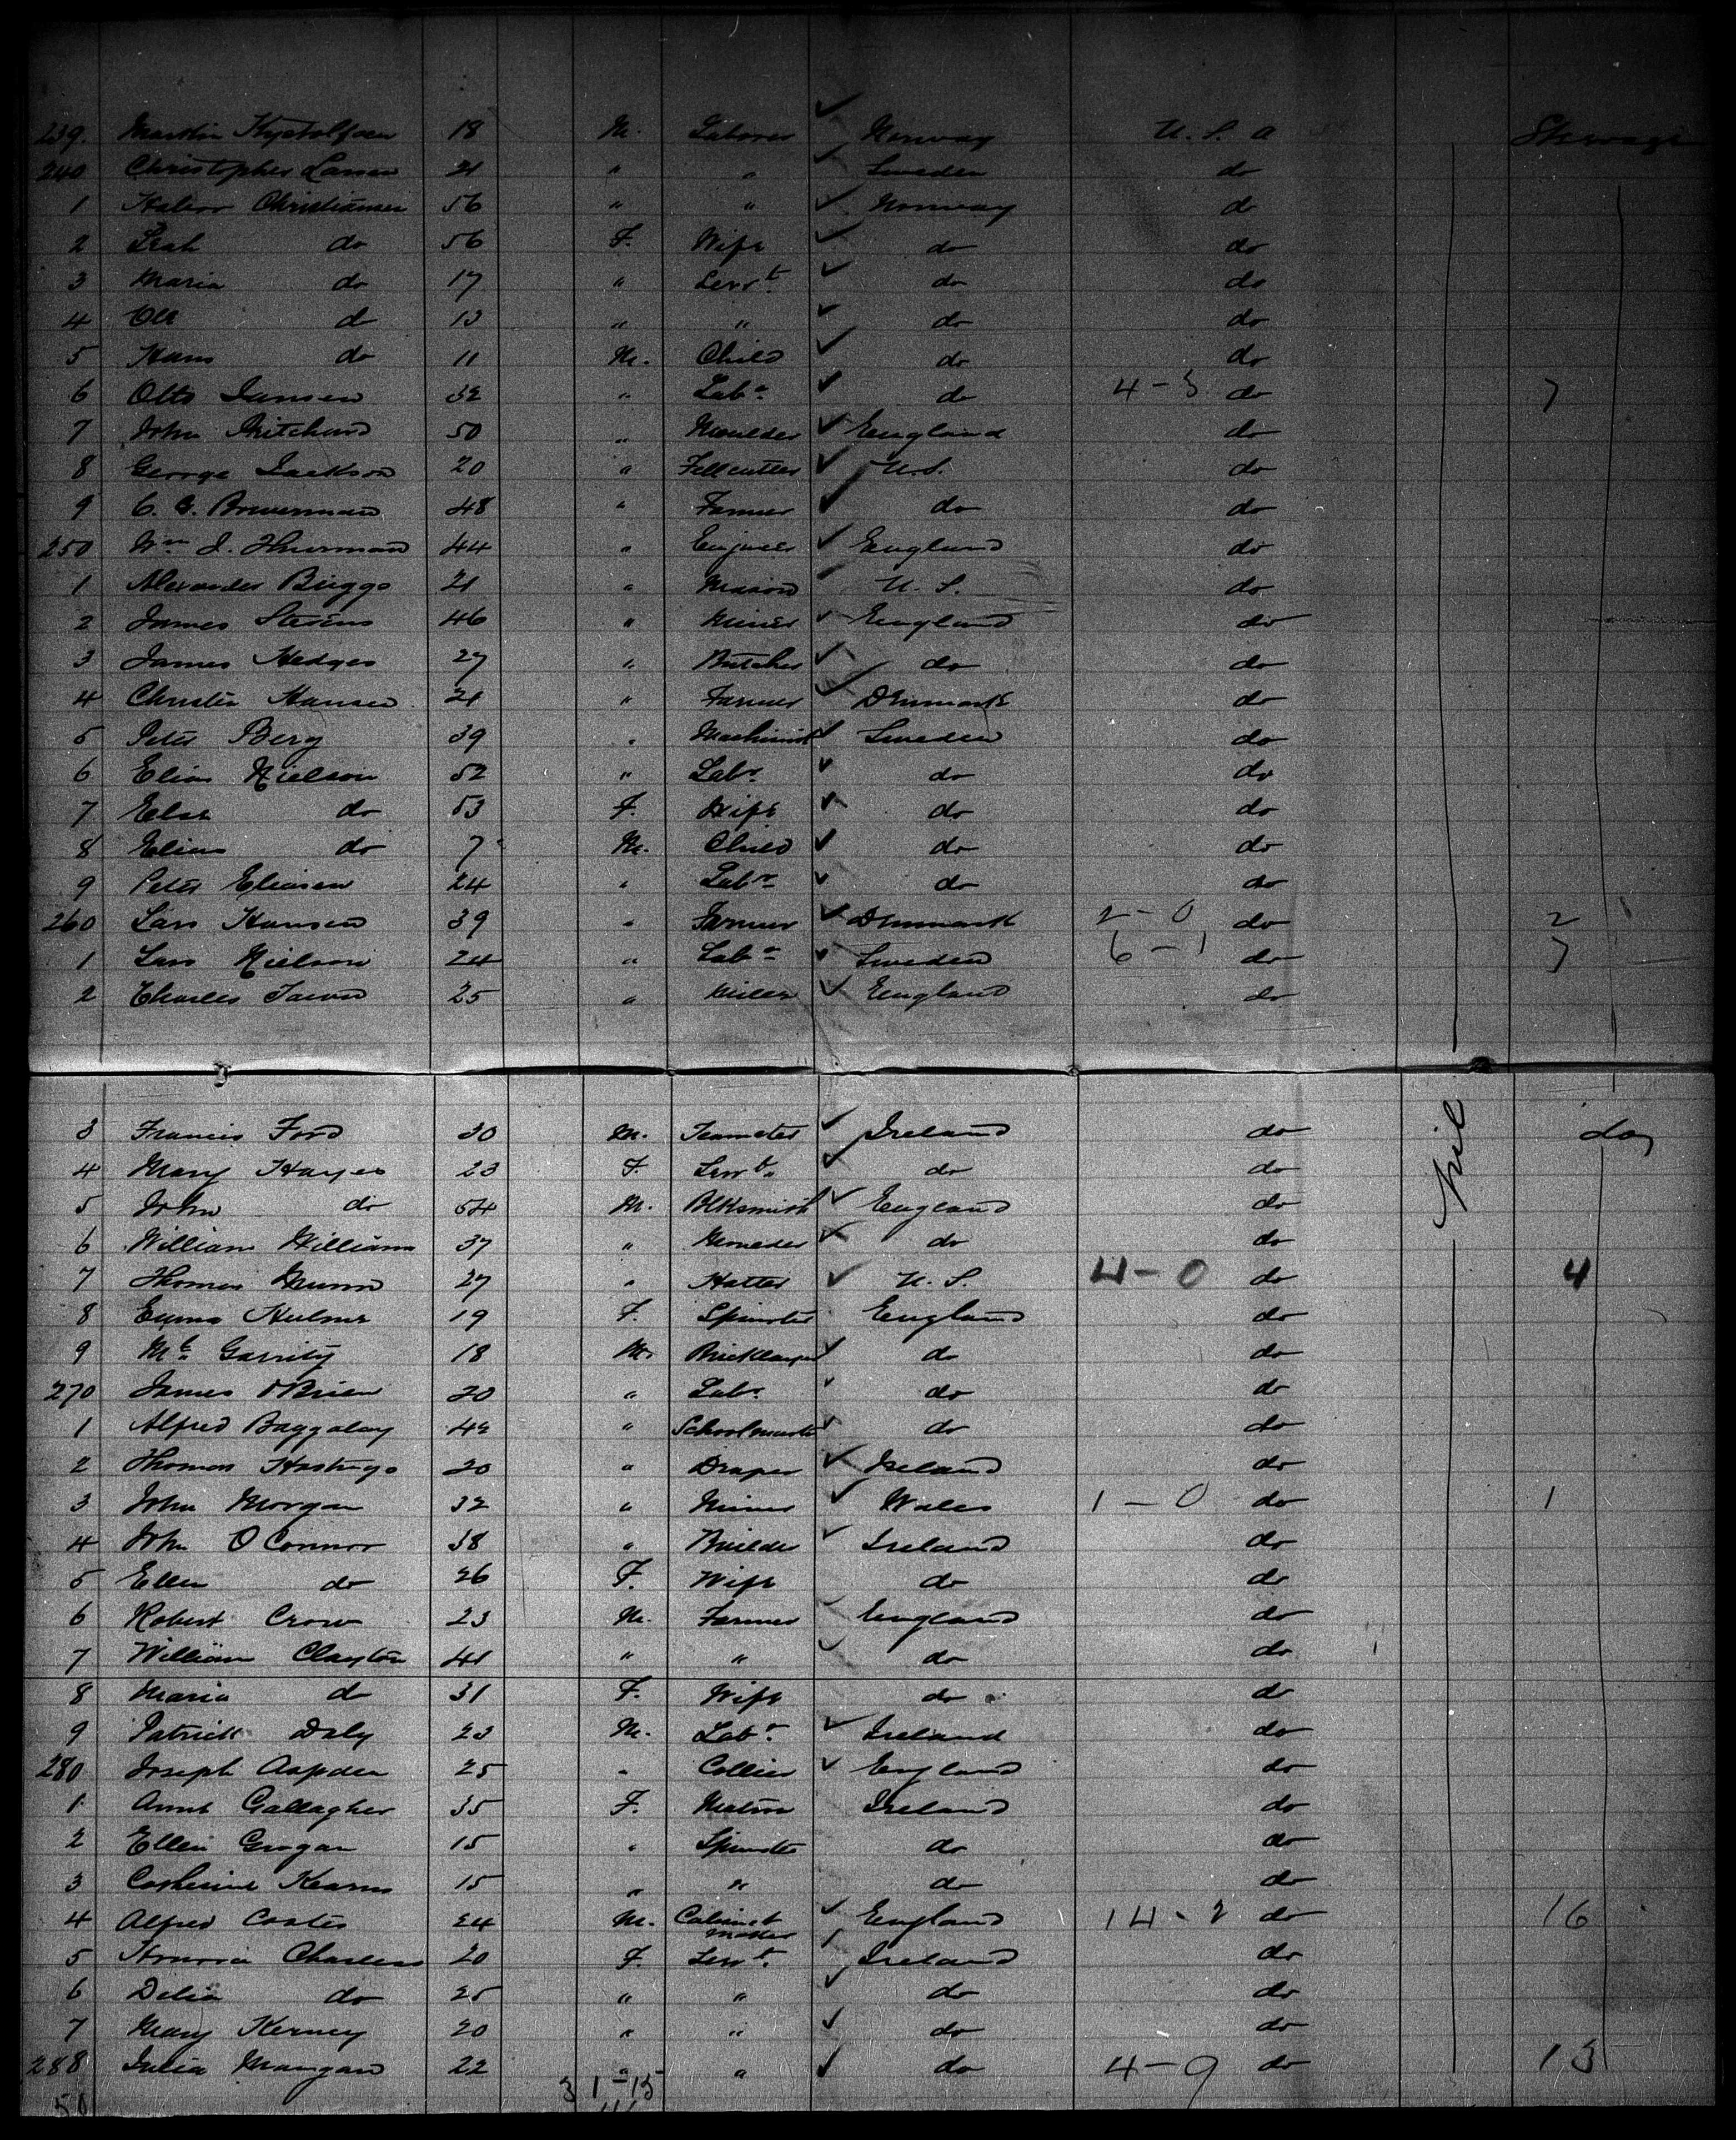 239. Martin Kystolfsen 18 M. Laborer ✓ Norway U. S. A Steerage
240 Christopher Larsen 21 " " ✓ Sweden do
1 Halvor Christiansen 56 " " ✓ Norway do
2 Leah do 56 F. Wife ✓ do do
3 Maria do 17 " Servt. ✓ do do
4 do 13 " " ✓ do do
5 Hans do 11 M. Child ✓ do do
6 Otto Jansen 32 " Labr. ✓ do 4-3 do 7
7 John Pritchard 50 " Moulder ✓ England do
8 George Jackson 20 " Fellcutter ✓ U.S. do
9 C. G. Bowerman 48 " Farmer ✓ do do
250 Wm J. Thurman 44 " Engineer ✓ England do
1 Alexander Briggs 21 " Mason ✓ U. S. do
2 James Stevens 46 " Miner ✓ England do
3 James Hedges 27 " Butcher ✓ do do
4 Christen Hansen 21 " Farmer ✓ Denmark do
5 Peter Berg 39 " Machinist ✓ Sweden do
6 Elias Nielson 52 " Labr. ✓ do do
7 Else do 53 F. Wife ✓ do do
8 Elias do 7 M. Child ✓ do do
9 Peter Eliasen 24 " Labr. ✓ do do
260 Lars Hansen 39 " Farmer ✓ Denmark 2-0 do 2
1 Lars Nielson 24 " Labr. ✓ Sweden 6-1 do 7
2 Charles 25 " Miller ✓ England do
3 Francis Ford 30 M. Teamster ✓ Ireland do Nil do
4 Mary Hayes 23 F. Servt. ✓ do do
5 John do 54 M. Blksmith ✓ England do
6 William Williams 37 " Moulder ✓ do do
7 Thomas Munn 27 " Hatter ✓ U. S. 4-0 do 4
8 Emma Hulme 19 F. Spinster England do
9 Ml. Garrity 18 M. Bricklayer ✓ do do
270 James O'Brien 20 " Labr. ✓ do do
1 Alfred Baggaley 42 " Schoolmaster ✓ do do
2 Thomas Hastings 20 " Draper ✓ Ireland do
3 John Morgan 32 " Miner ✓ Wales 1-0 do 1
4 John O'Connor 38 " Builder ✓ Ireland do
5 Ellen do 26 F. Wife do do
6 Robert Crow 23 M. Farmer ✓ England do
7 William Clayton 41 " " ✓ do do
8 Maria do 31 F. Wife do do
9 Patrick Daly 23 M. Labr. ✓ Ireland do
280 Joseph Aspden 25 " Collier ✓ England do
1 Anne Gallagher 35 F. Matron Ireland do
2 Ellen Grogan 15 " Spinster do do
3 Catherine Kearns 15 " " do do
4 Alfred Coates 24 M. Cabinet maker ✓ England 14-2 do 16
5 Honoria Charless 20 F. Servt. ✓ Ireland do
6 Delia do 25 " " ✓ do do
7 Mary Kerney 20 " " ✓ do do
288 Julia Mangan 22 " " ✓ do 4-9 do 13
31-15